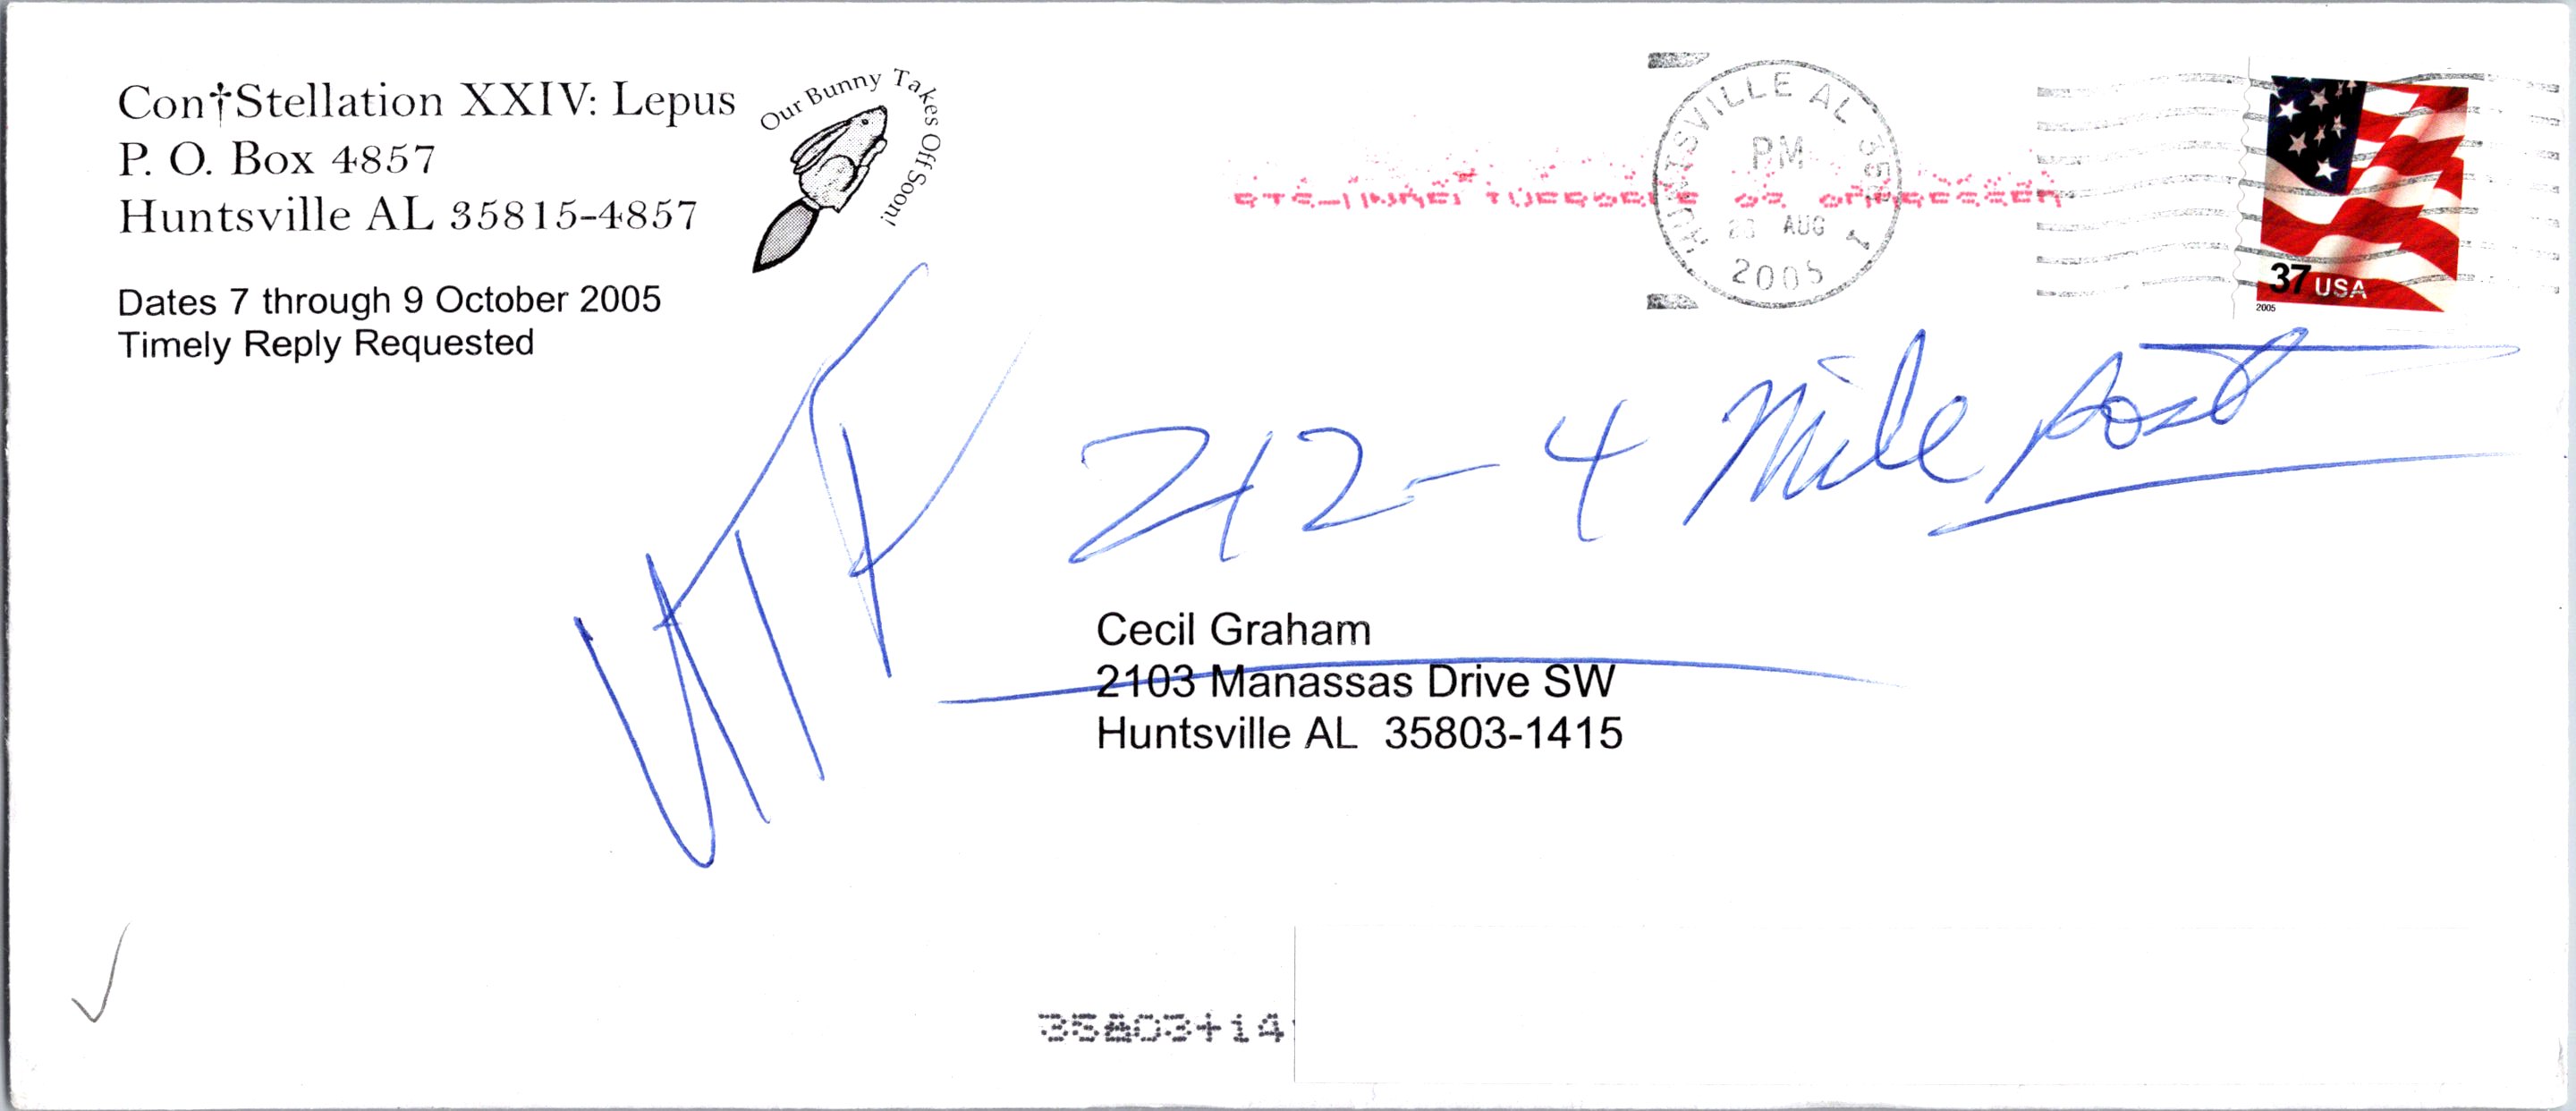 Con†Stellation XXIV: Lepus
P. O. Box 4857
Huntsville AL 35815-4857
Our Bunny Takes Off Soon!
Dates 7 through 9 October 2005
Timely Reply Requested
HUNTSVILLE AL
PM
AUG
2005
37 USA
2005
UTF
212-4 Mile Post
Cecil Graham
2103 Manassas Drive SW
Huntsville AL 35803-1415
35803+14